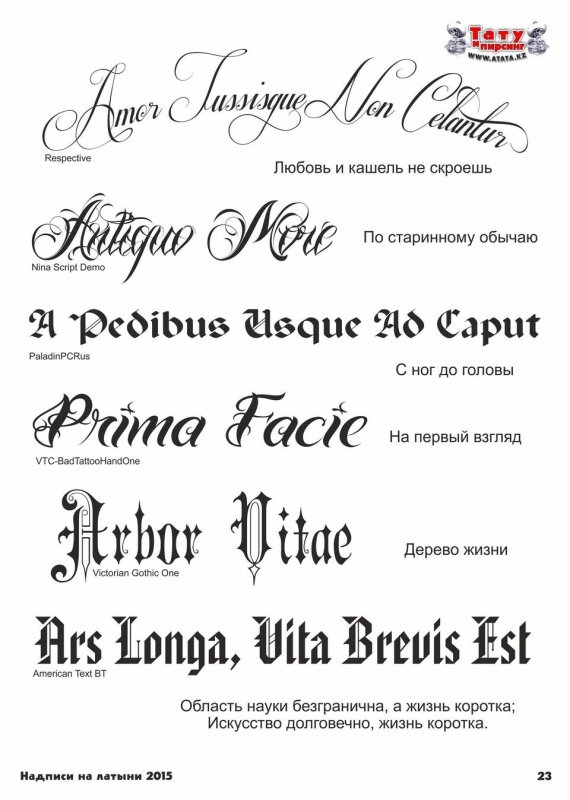 Тату
и пирсинг
WWW.ATATA.KZ
Amor Tussisque Non Celantur
Respective
Любовь и кашель не скроешь
Antiquo More
По старинному обычаю
Nina Script Demo
A Pedibus Usque Ad Caput
PaladinPCRus
С ног до головы
Prima Facie
На первый взгляд
VTC-BadTattooHandOne
Arbor Vitae
Дерево жизни
Victorian Gothic One
Ars Longa, Vita Brevis Est
American Text BT
Область науки безгранична, а жизнь коротка;
Искусство долговечно, жизнь коротка.
Надписи на латыни 2015
23